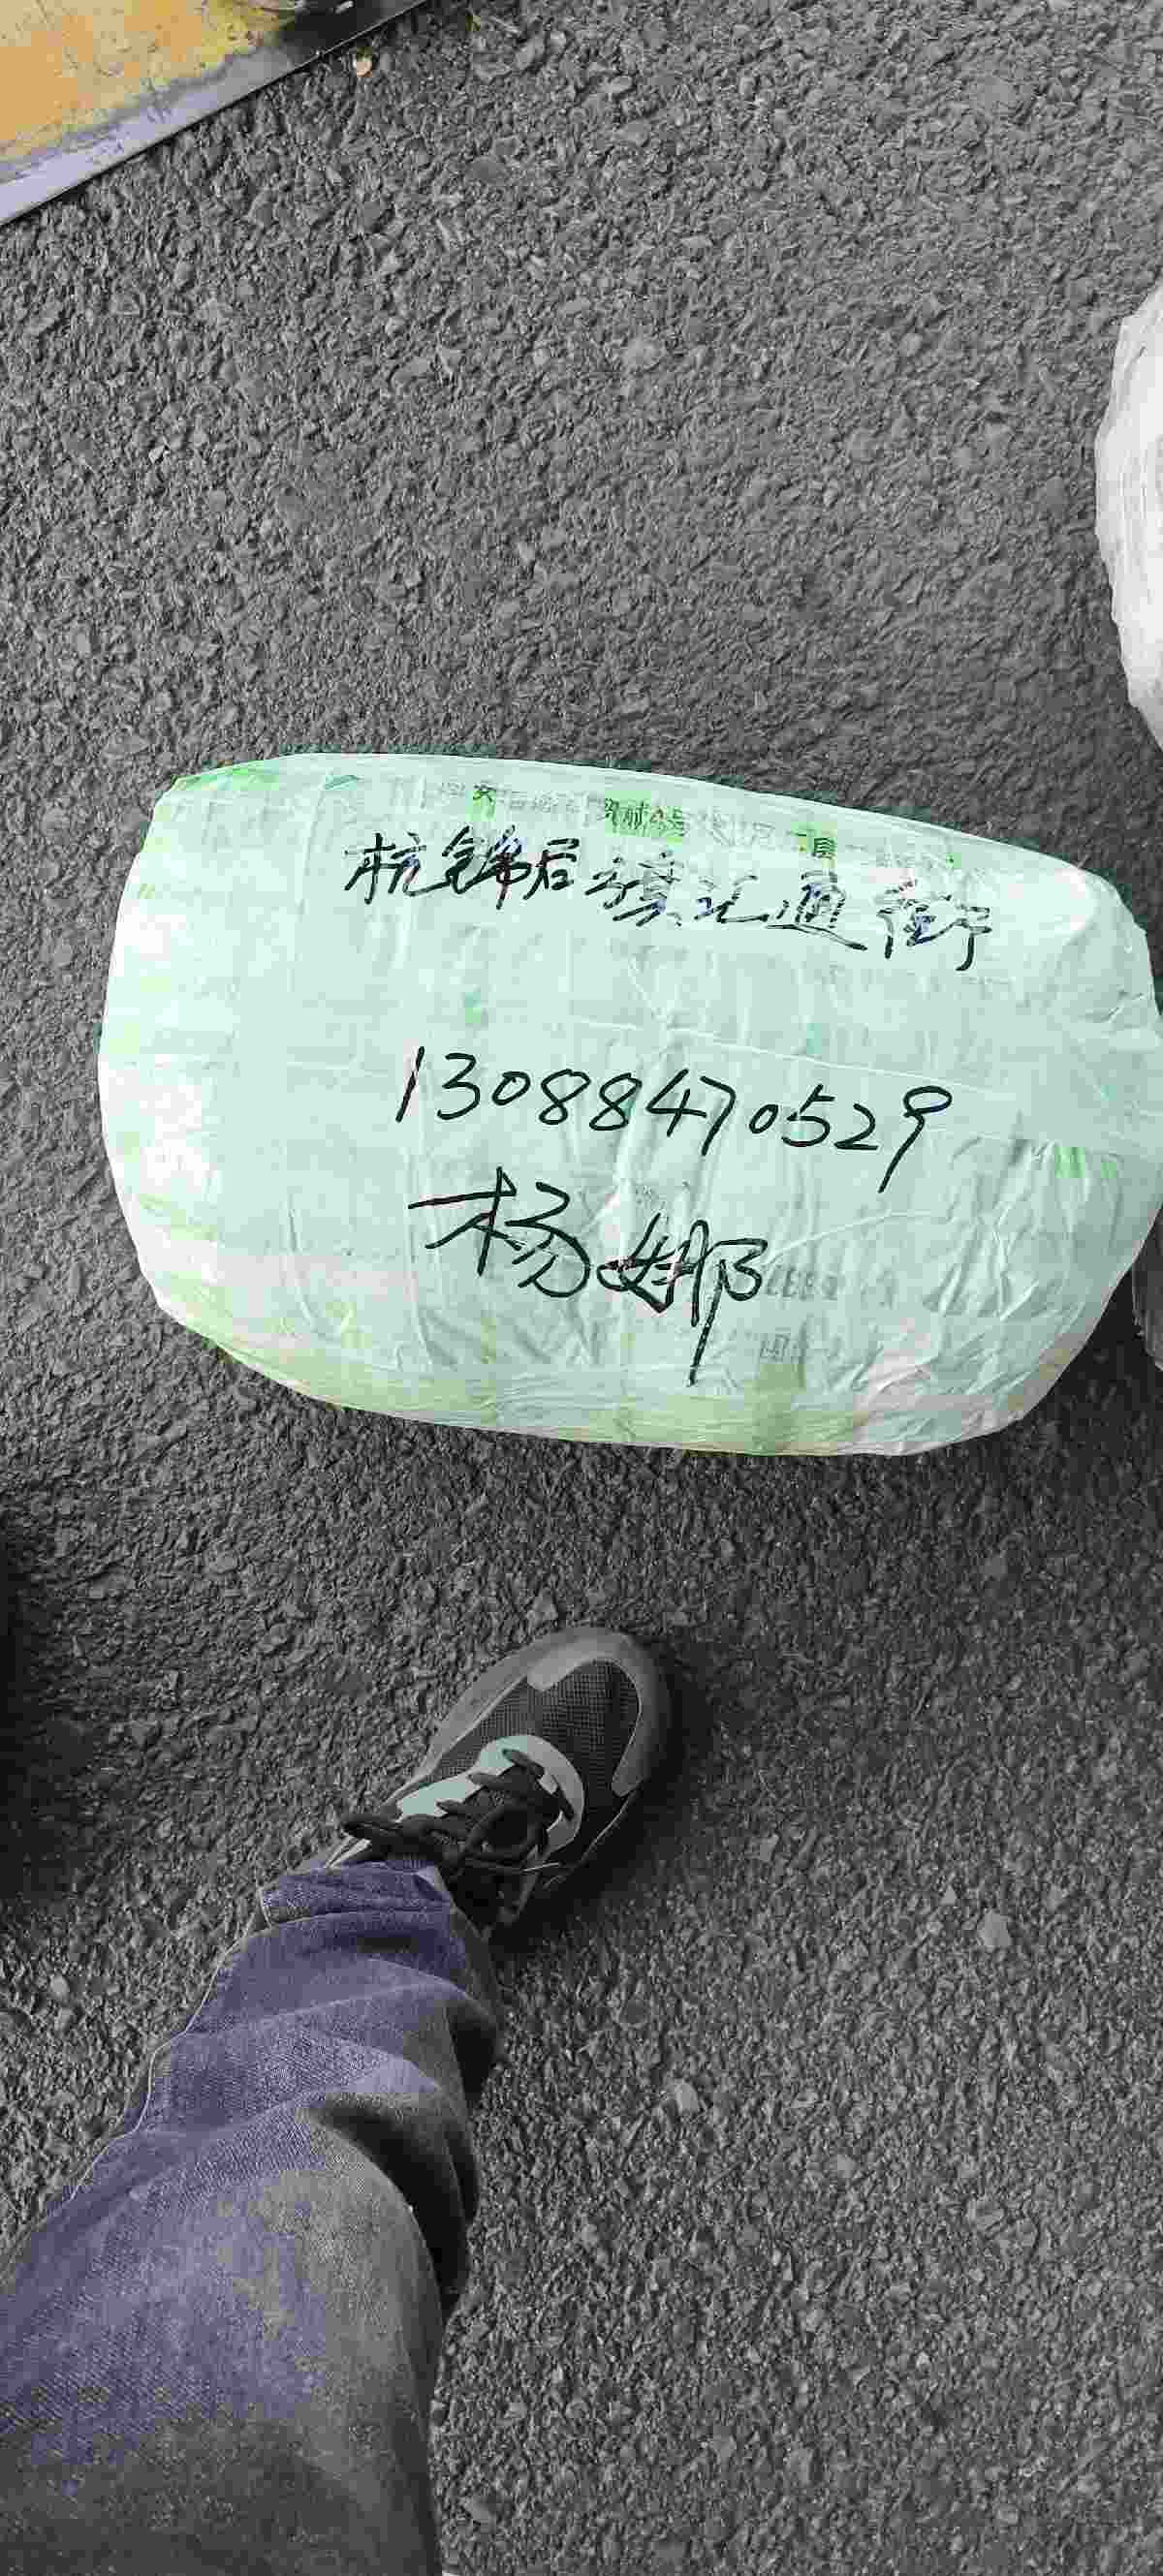 杭锦后旗汇通街
13088470529
杨娜